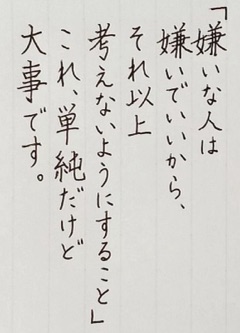 「嫌いな人は
嫌いでいいから、
それ以上
考えないようにすること」
これ、単純だけど
大事です。